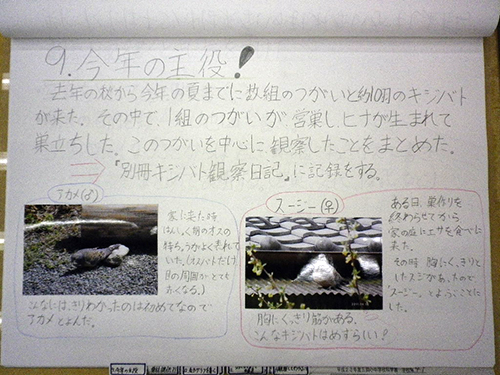 9.今年の主役!
去年の秋から今年の夏までに数組のつがいと約10羽のキジバト
が来た。その中で、1組のつがいが営巣し、ヒナが生まれて
巣立ちした。このつがいを中心に観察したことをまとめた。
『別冊キジバト観察日記』に記録をする。
アカメ(♂)
家に来た時
はんしょく期のオスの
特ちょうがよく表れて
いた。(オスバトだけ
目の周囲がとても
赤くなる。)
こんなにはっきりわかったのは初めてなので
アカメとよんだ。
スージー(♀)
ある日、巣作りを
終わらせてから
家の庭にエサを食べに
来た。
その時胸にくっきり
としたスジがあったので
"スージー"とよぶことに
した。
胸にくっきり筋がある。
こんなキジバトはめずらしい!